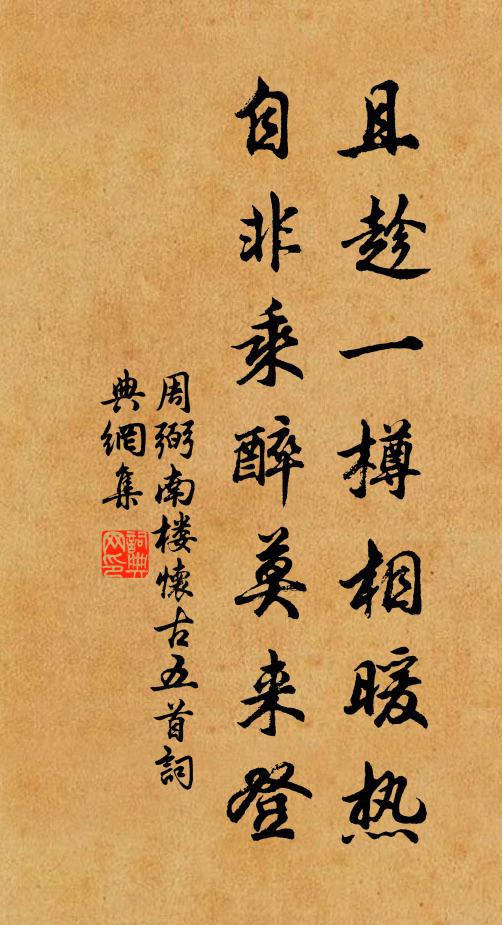 且趁一樽相暖热
自非乘醉莫来登
周弼南楼懷古五首詞
典網集
詞典网印